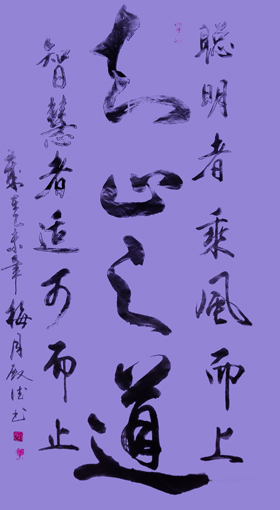 聪明者乘風而上
知止之道
智慧者适可而止
歲在乙未年梅月